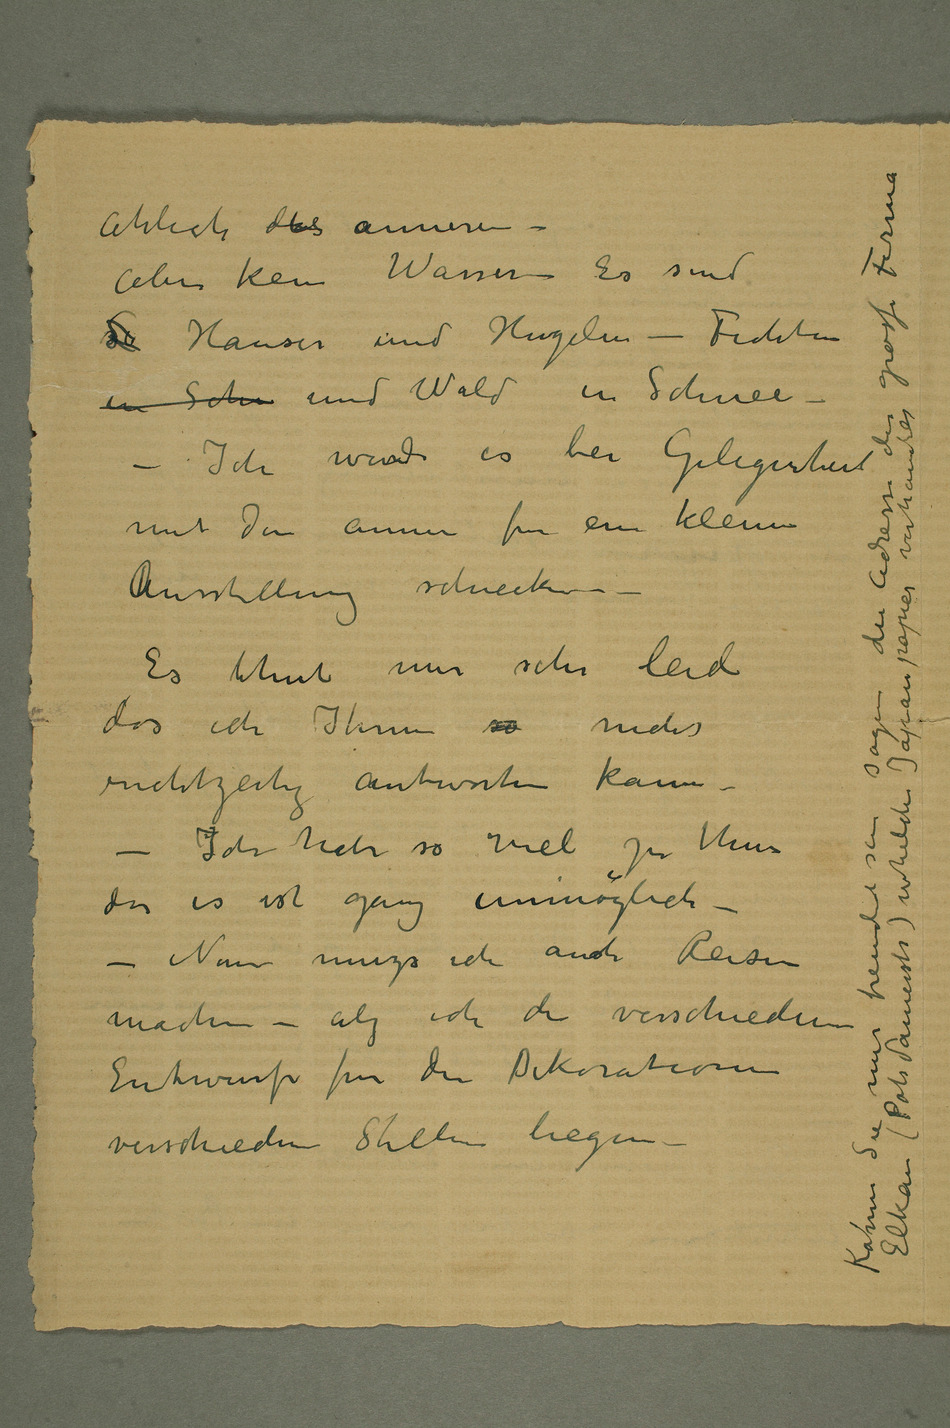 ahlich des anneren –
aber kein Wasser Es sind
So Hauser und Hugeln – Fichten
in Schn und Wald in Schnee –
– Ich werde es bei Gelegenheit
mit den annen für ein kleine
Ausstellung schicken –
Es thut mir sehr leid
das ich Ihnen so nicht
rechtzeitig antworten kann –
– Ich habe so viel zu thun
das es ist ganz unmöglich –
– Nun muzs ich auch Reisen
machen – alz ich die verschiedenen
Entwurfe für die Dekorationen
verschiedene Stellen liegen –
Kann Sie mir freundlich sein sagen die Adresse der grosse Firma
Elkan (Potsdamerstr) welche Japanpapier verhandler